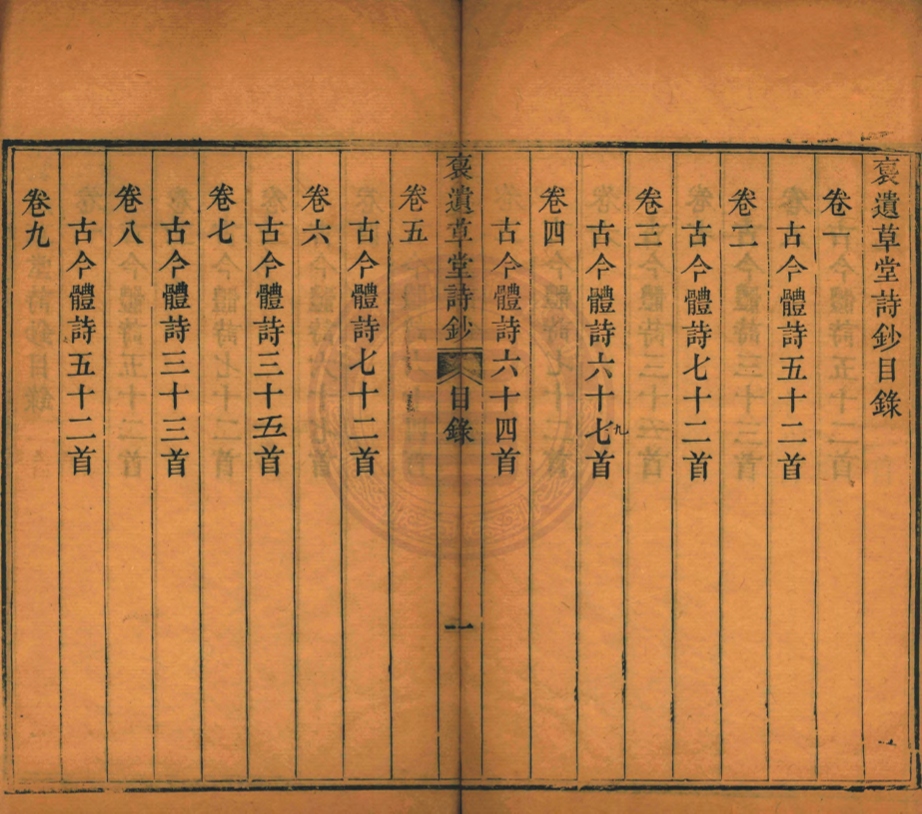 裒遺草堂詩鈔目錄
卷一
古今體詩五十二首
卷二
古今體詩七十二首
卷三
古今體詩六十七首
九
卷四
古今體詩六十四首
裒遺草堂詩鈔 目錄 一
卷五
古今體詩七十二首
卷六
古今體詩三十五首
卷七
古今體詩三十三首
卷八
古今體詩五十二首
卷九